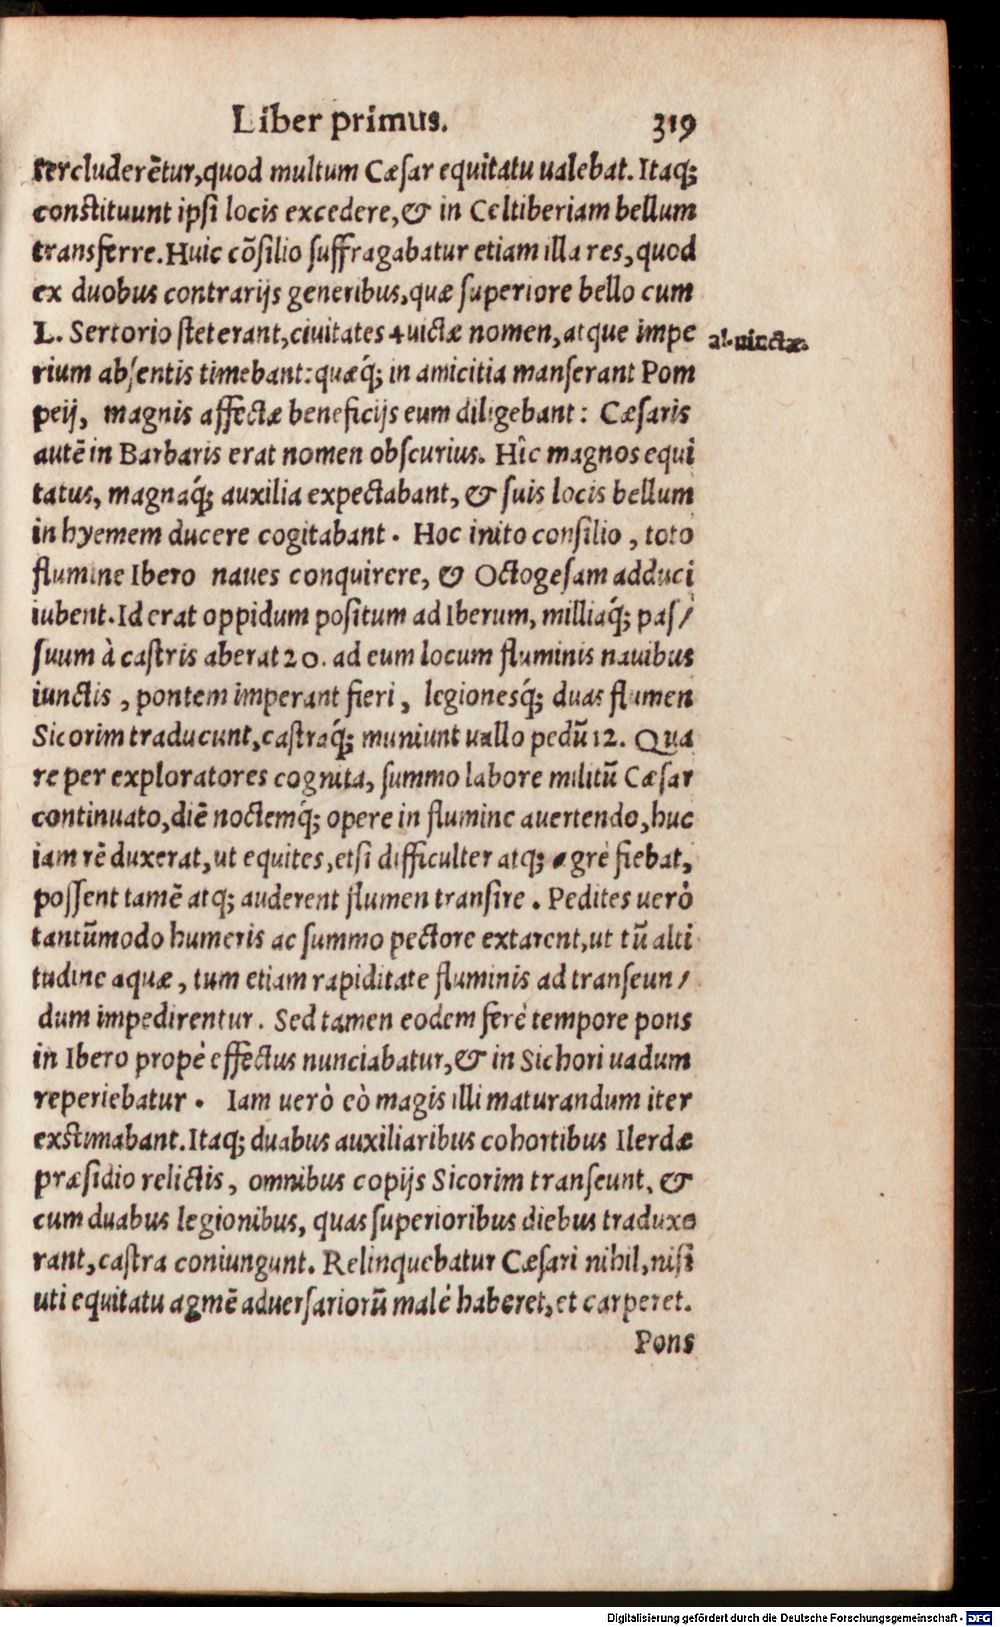 Liber primus. 319
tercluderētur, quod multum Cæsar equitatu ualebat. Itaq;
constituunt ipsi locis excedere, & in Celtiberiam bellum
transferre. Huic cōsilio suffragabatur etiam illa res, quod
ex duobus contrarijs generibus, quæ superiore bello cum
L. Sertorio steterant, ciuitates ✢uictæ nomen, atque impe
al. uinctæ.
rium absentis timebant: quæq́; in amicitia manserant Pom
peij, magnis affectæ beneficijs eum diligebant: Cæsaris
autē in Barbaris erat nomen obscurius. Hîc magnos equi
tatus, magnaq́; auxilia expectabant, & suis locis bellum
in hyemem ducere cogitabant. Hoc inito consilio, toto
flumine Ibero naues conquirere, & Octogesam adduci
iubent. Id erat oppidum positum ad Iberum, milliaq́; pas/
suum à castris aberat 20. ad eum locum fluminis nauibus
iunctis, pontem imperant fieri, legionesq́; duas flumen
Sicorim traducunt, castraq́; muniunt uallo pedū 12. Qua
re per exploratores cognita, summo labore militū Cæsar
continuato, diē noctemq́; opere in flumine auertendo, huc
iam rē duxerat, ut equites, etsi difficulter atq; ægrè fiebat,
possent tamē atq; auderent flumen transire. Pedites uerò
tantūmodo humeris ac summo pectore extarent, ut tū alti
tudine aquæ, tum etiam rapiditate fluminis ad transeun/
dum impedirentur. Sed tamen eodem ferè tempore pons
in Ibero propè effectus nunciabatur, & in Sichori uadum
reperiebatur. Iam uerò eò magis illi maturandum iter
exstimabant. Itaq; duabus auxiliaribus cohortibus Ilerdæ
præsidio relictis, omnibus copijs Sicorim transeunt, &
cum duabus legionibus, quas superioribus diebus traduxe
rant, castra coniungunt. Relinquebatur Cæsari nihil, nisi
uti equitatu agmē aduersariorū malè haberet, et carperet.
Pons
Digitalisierung gefördert durch die Deutsche Forschungsgemeinschaft - DFG